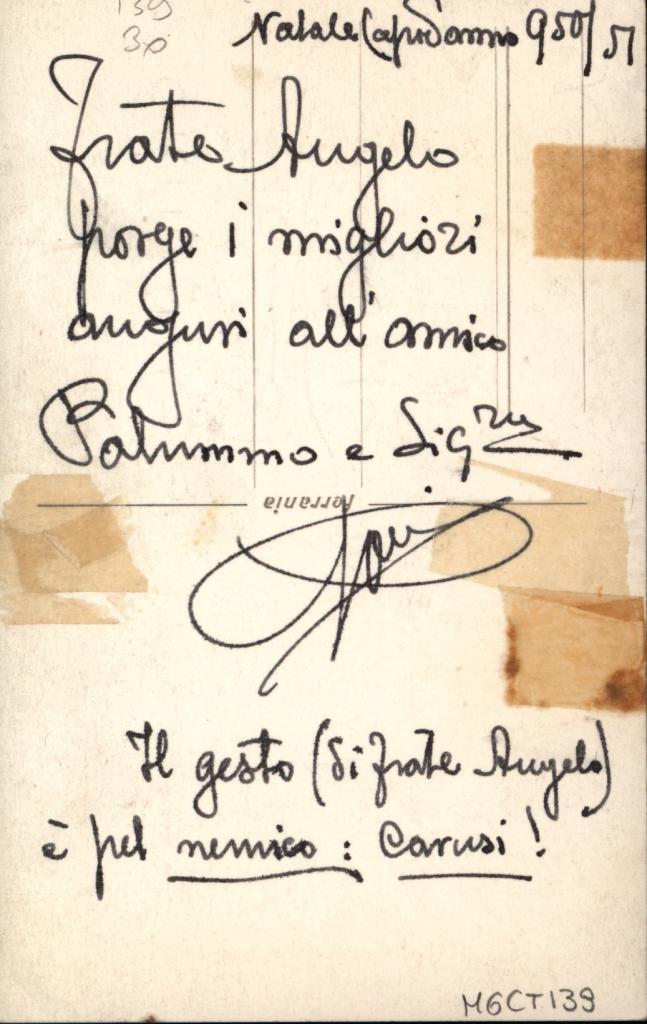 139
30
Natale Capodanno 950/51
Frate Angelo
porge i migliori
auguri all'amico
Palummo e Sig.ra
Ferrania
Il gesto (di frate Angelo)
è pel nemico: Carusi!
M6CT139